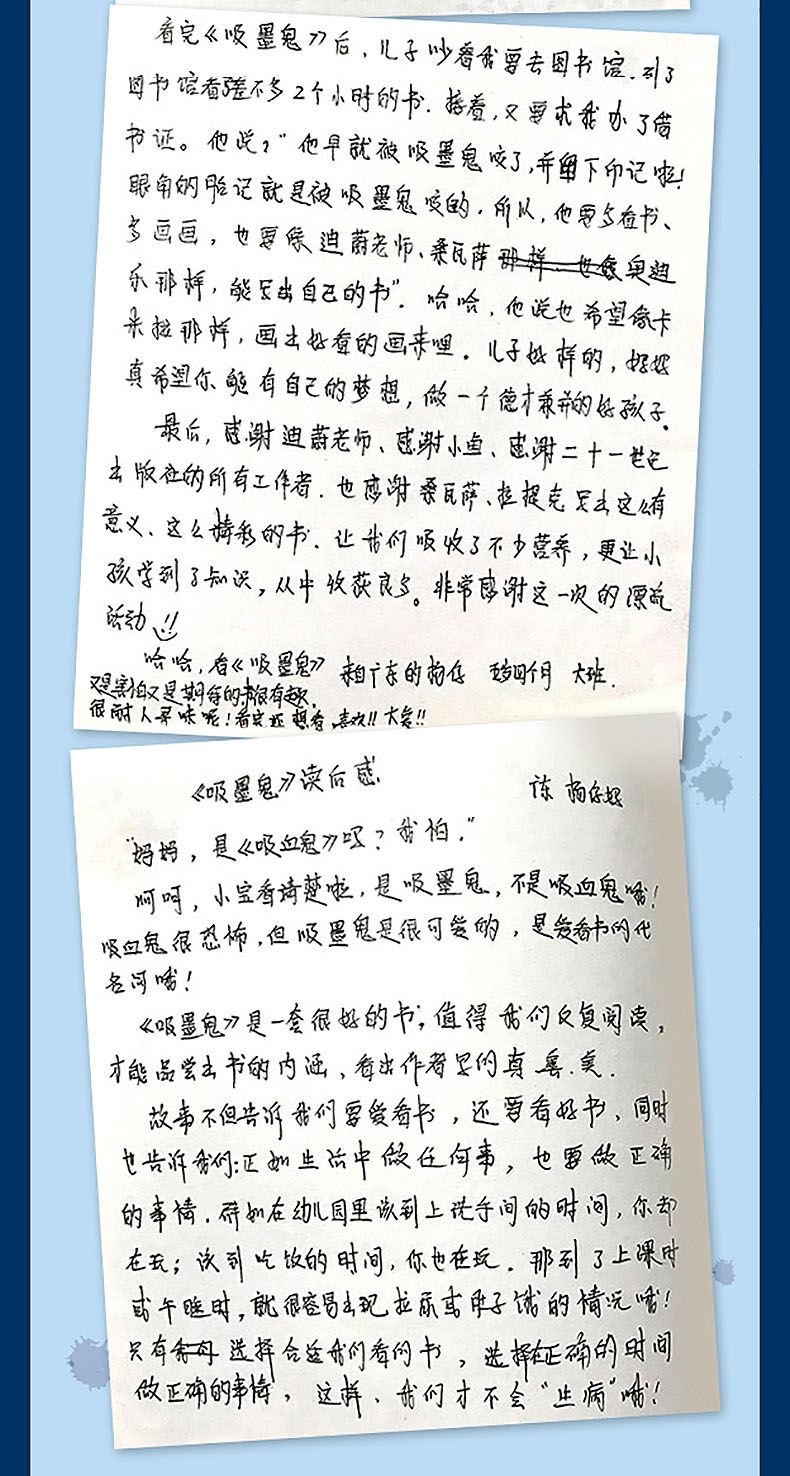 看完《吸墨鬼》后，儿子吵着我要去图书馆。到了
图书馆看差不多2个小时的书。接着，又要求我办了借
书证。他说："他早就被吸墨鬼咬了，并留下印记啦！
眼角的胎记就是被吸墨鬼咬的。所以，他要多看书、
多画画，也要像迪蔚老师、桑瓦萨那样 也像奥迪
乐那样，能写出自己的书"。哈哈，他说也希望像卡
米拉那样，画出好看的画来哩。儿子好样的，好好
真希望你能有自己的梦想，做一个德才兼并的好孩子。
最后，感谢迪蔚老师、感谢小鱼、感谢二十一世纪
出版社的所有工作者。也感谢桑瓦萨、拉捷克写出这么有
意义、这么精彩的书。让我们吸收了不少营养，更让小
孩学到了知识，从中收获良多。非常感谢这一次的漂流
活动!!
哈哈，看《吸墨鬼》 来自广东的杨仔 五岁四个月 大班.
又是害怕又是期待的 很有趣.
很耐人寻味呢！看完还想看 喜欢!! 大爱!!
《吸墨鬼》读后感
陈杨仔好
"妈妈，是《吸血鬼》吗？我怕。"
呵呵，小宝看清楚啦，是吸墨鬼，不是吸血鬼哦！
吸血鬼很恐怖，但吸墨鬼是很可爱的，是爱看书的代
名词哦！
《吸墨鬼》是一套很好的书，值得我们反复阅读，
才能品尝出书的内涵，看出作者写的真、善、美.
故事不但告诉我们要爱看书，还要看好书、同时
也告诉我们：正如生活中做任何事，也要做正确
的事情.例如在幼儿园里该到上洗手间的时间，你却
在玩；该到吃饭的时间，你也在玩.那到了上课时
或午睡时，就很容易出现拉尿或肚子饿的情况哦！
只有 选择合适我们看的书，选择在正确的时间
做正确的事情，这样、我们才不会"生病"哦！